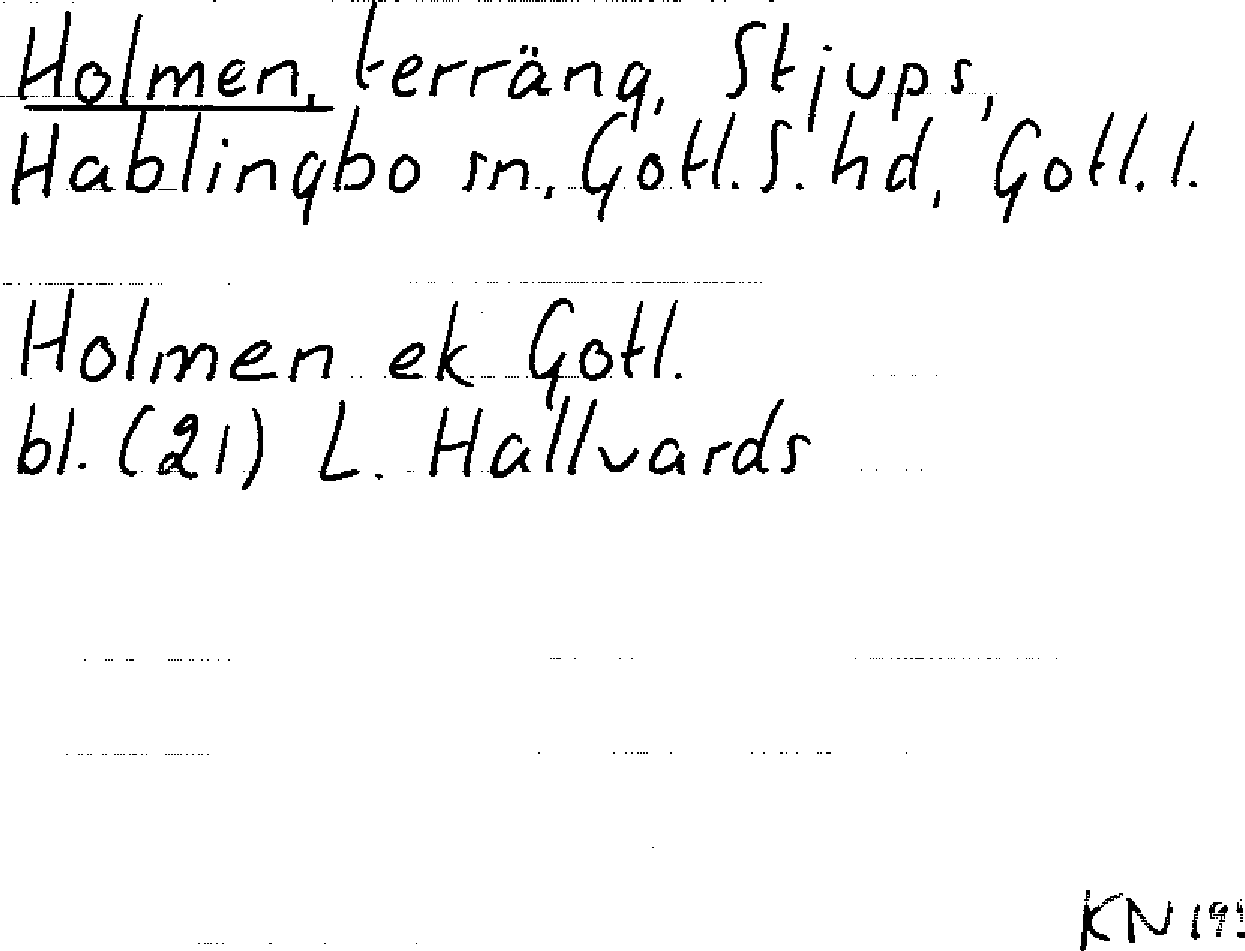 Holmen, terräng, Stjups,
Hablingbo sn, Gotl. S. hd, Gotl. l.
Holmen ek Gotl.
bl. (21) L. Hallvards
KN